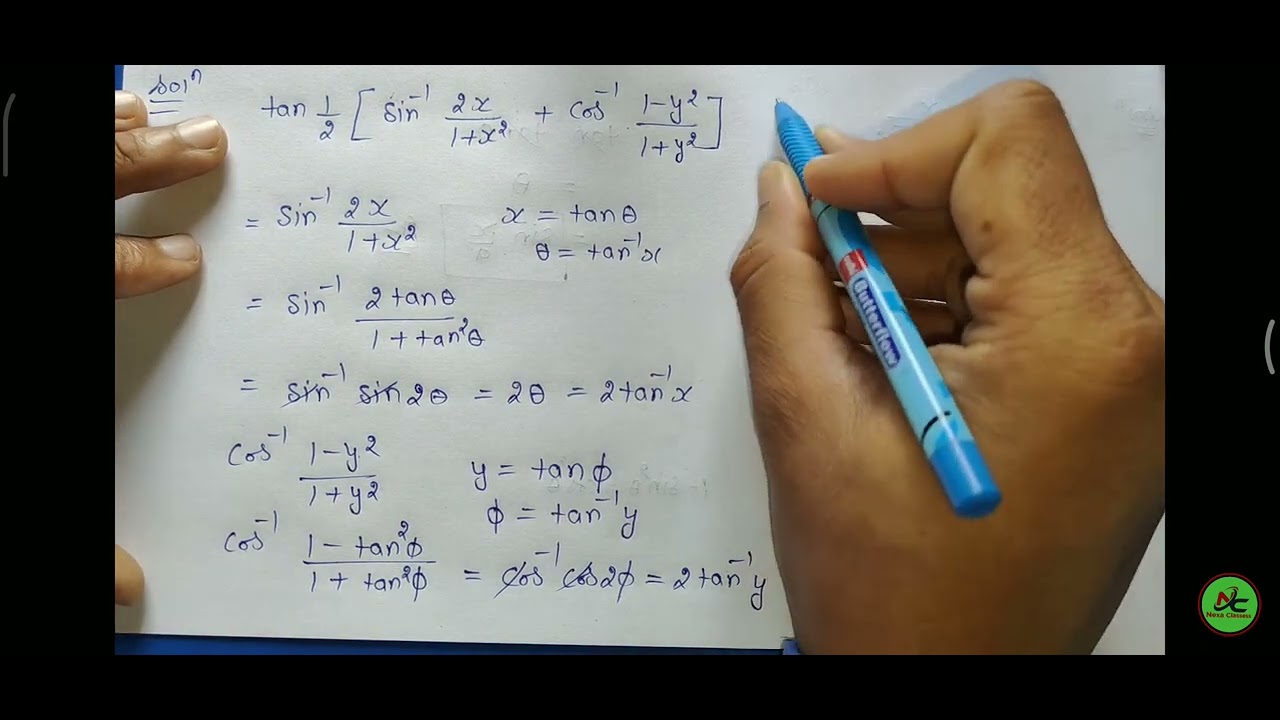 soln
tan 1/2 [ sin⁻¹ 2x/1+x² + cos⁻¹ 1-y²/1+y² ]
= sin⁻¹ 2x/1+x² x = tanθ
θ = tan⁻¹x
= sin⁻¹ 2tanθ/1+tan²θ
= sin⁻¹ sin2θ = 2θ = 2tan⁻¹x
cos⁻¹ 1-y²/1+y² y = tanϕ
ϕ = tan⁻¹y
cos⁻¹ 1-tan²ϕ/1+tan²ϕ = cos⁻¹ cos2ϕ = 2tan⁻¹y
Butterflow
NC
Nexa Classes